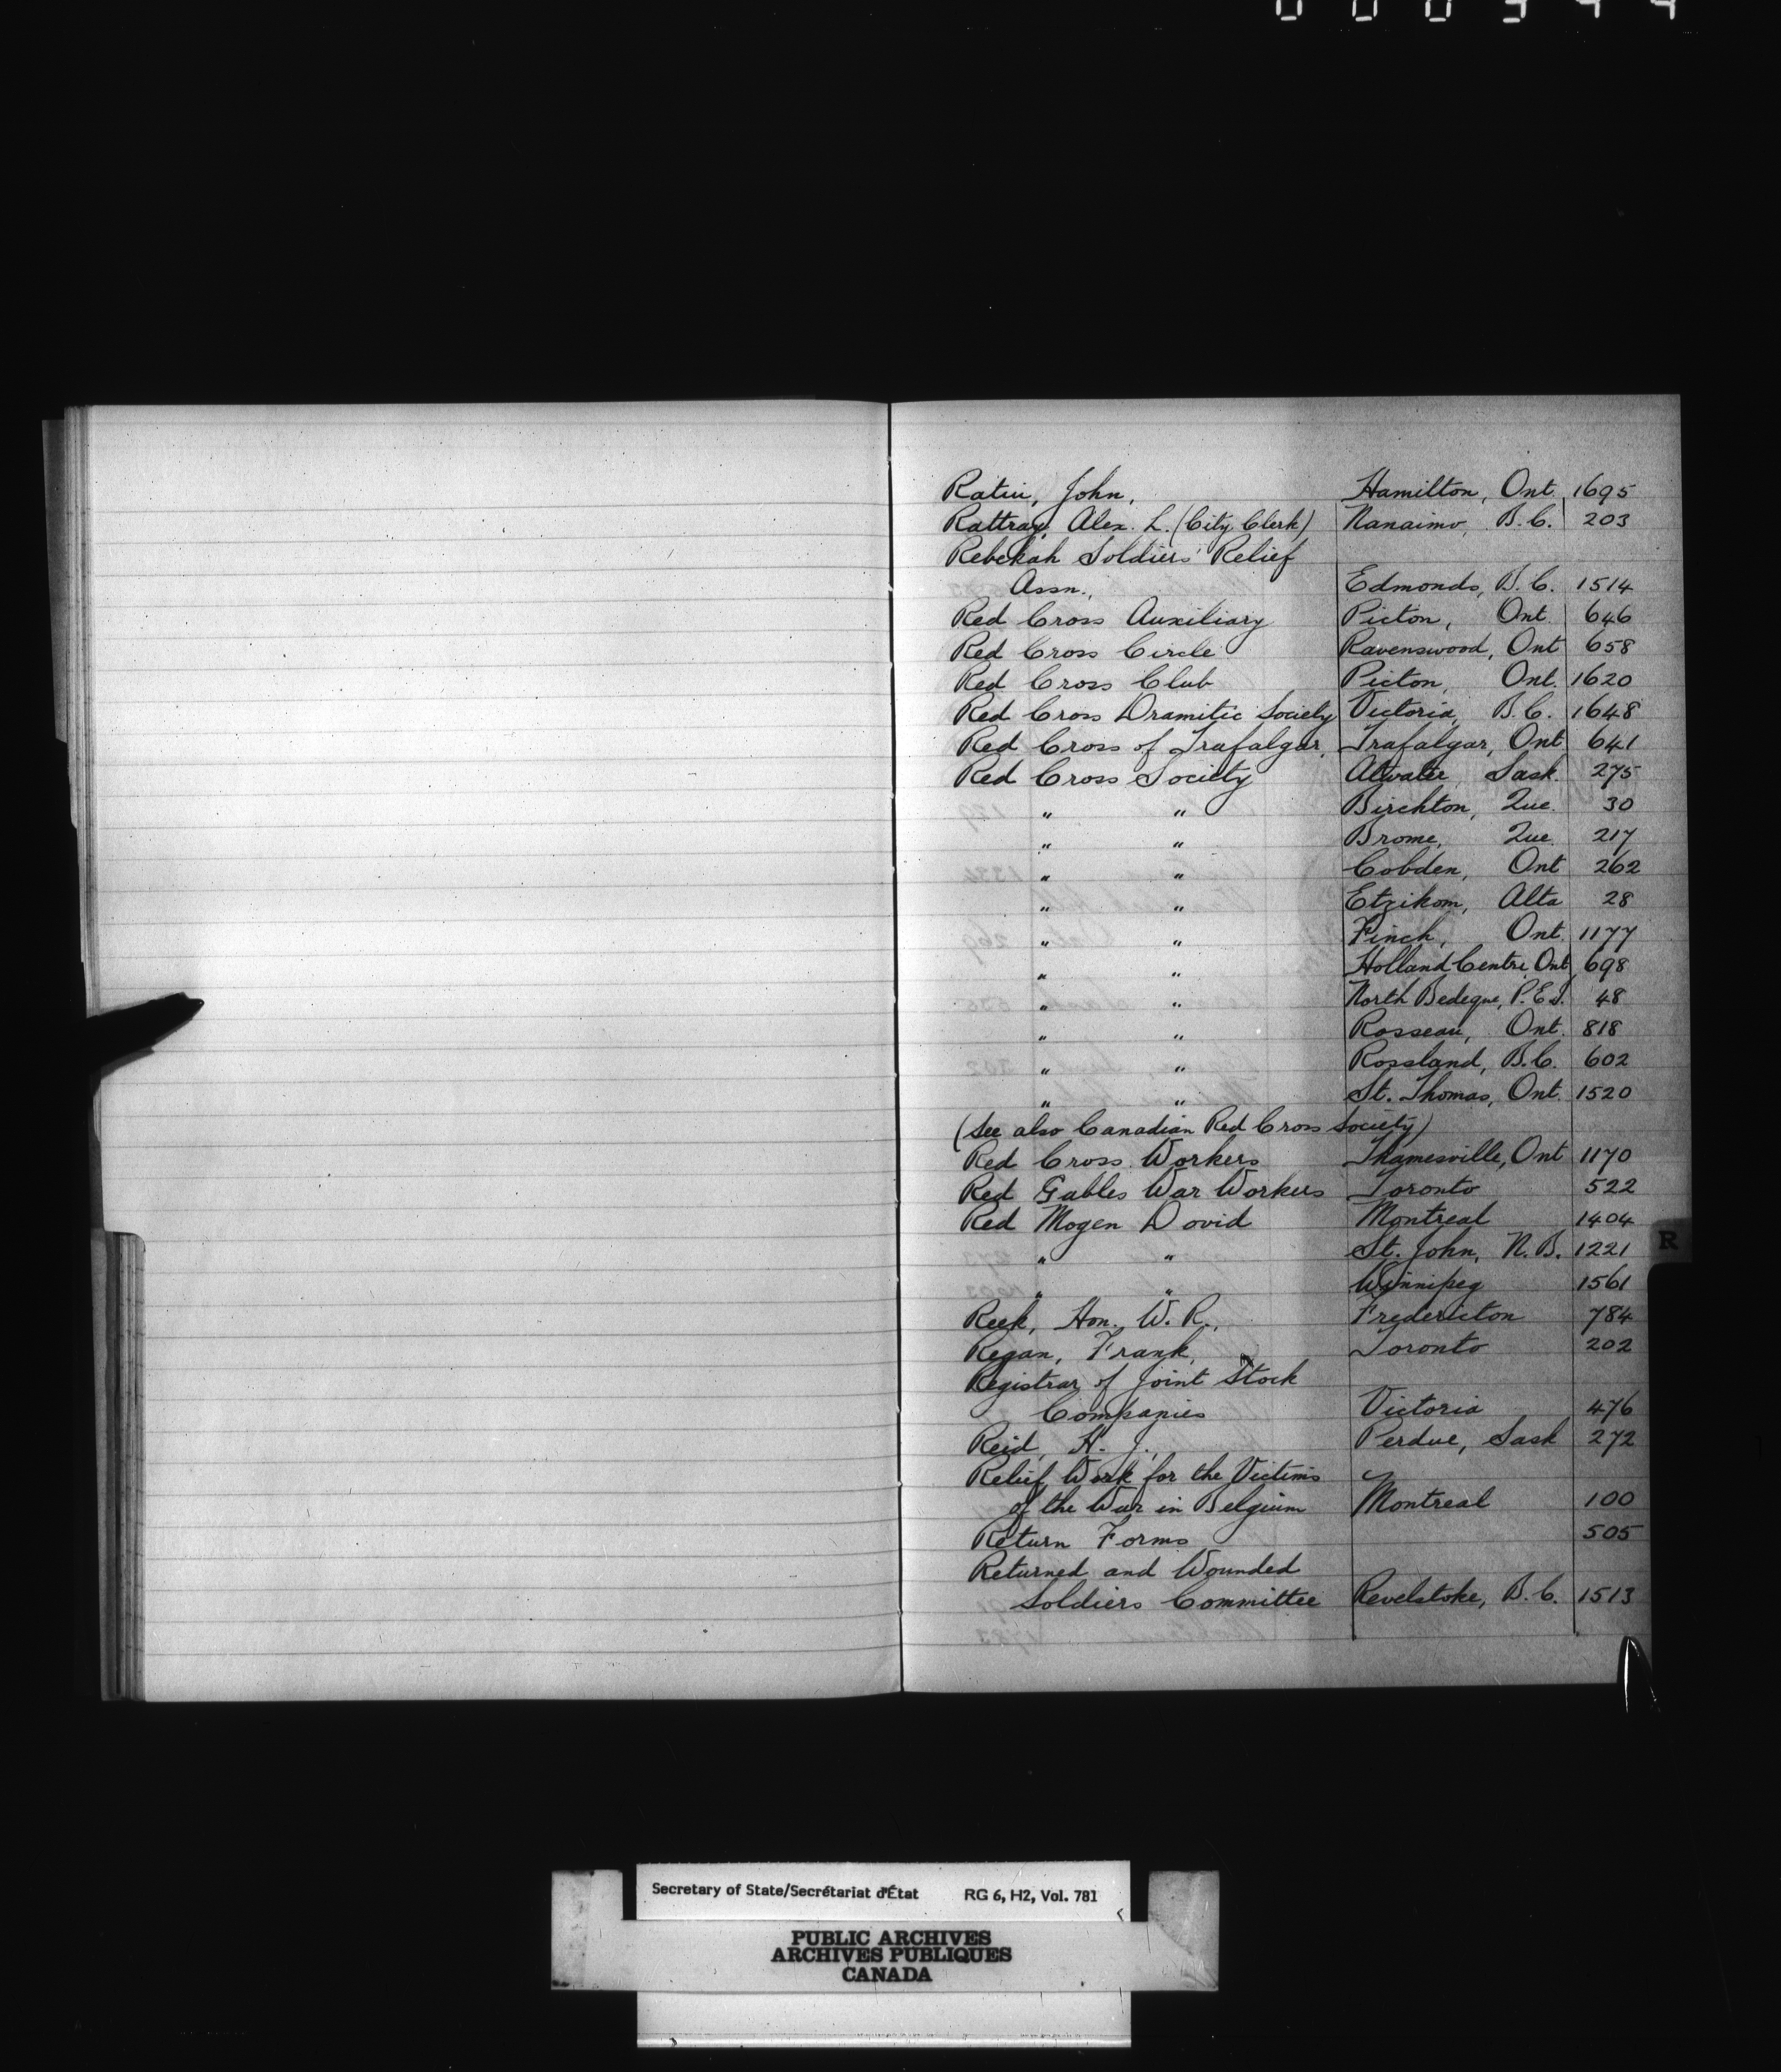 Ratin, John, Hamilton, Ont. 1695
Rattray, Alex. L. (City Clerk) Nanaimo, B.C. 203
Rebekah Soldiers' Relief
Assn., Edmonds, B.C. 1514
Red Cross Auxiliary Picton, Ont. 646
Red Cross Circle Ravenswood, Ont 658
Red Cross Club Picton, Ont. 1620
Red Cross Dramitic Society Victoria, B.C. 1648
Red Cross of Trafalgar, Trafalgar, Ont 641
Red Cross Society Atwater, Sask. 275
" " Birchton, Que. 30
" " Brome, Que. 217
" " Cobden, Ont 262
" " Etzikom, Alta 28
" " Finch, Ont. 1177
" " Holland Centre, Ont 698
" " North Bedeque, P.E.I. 48
" " Rosseau, Ont. 818
" " Rossland, B.C. 602
" " St. Thomas, Ont. 1520
(See also Canadian Red Cross Society)
Red Cross Workers Thamesville, Ont 1170
Red Gables War Workers Toronto 522
Red Mogen Dovid Montreal 1404
" " St. John, N.B. 1221
" " Winnipeg 1561
Reek, Hon. W. R., Fredericton 784
Regan, Frank, Toronto 202
Registrar of Joint Stock
Companies Victoria 476
Reid, H. J., Perdue, Sask 272
Relief Work for the Victims
of the War in Belgium Montreal 100
Return Forms 505
Returned and Wounded
Soldiers Committee Revelstoke, B.C. 1513
R
Secretary of State/Secrétariat d'État RG 6, H2, Vol. 781
PUBLIC ARCHIVES
ARCHIVES PUBLIQUES
CANADA